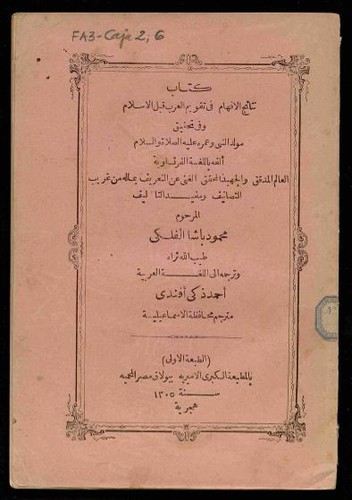 FA3-Caja 2; 6
كتاب
نتائج الافهام فى تقويم العرب قبل الاسلام
وفى تحقيق
مولد النبى وعمره عليه الصلاة والسلام
ألفه باللغة الفرنساوية
العالم المدقق والجهبذ المحقق الغنى عن التعريف بماله من غريب
التصانيف ومفيد التآليف
المرحوم
محمود باشا الفلكى
طيب الله ثراه
وترجمه الى اللغة العربية
أحمد زكى أفندى
مترجم محافظة الاسماعيلية
(الطبعة الاولى)
بالمطبعة الكبرى الاميريه ببولاق مصر المحميه
سنة ١٣٠٥
هجرية